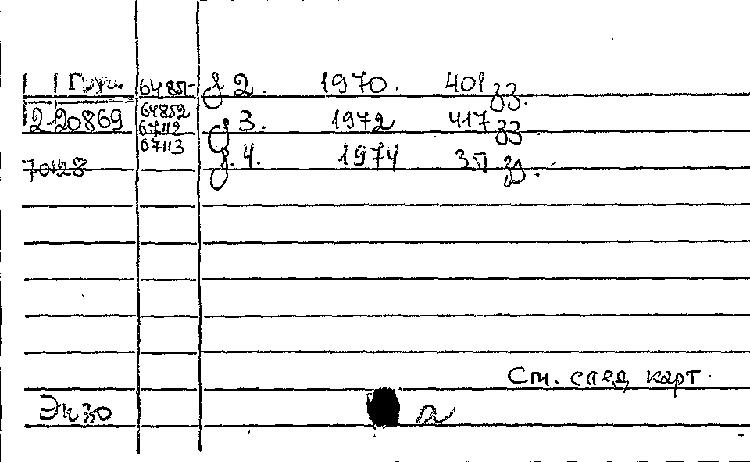 64851 д 2. 1970. 401 зз.
2-20869 64852 67112 д 3. 1972 417 зз
67113
70128 д. 4. 1974 зз.
См. след карт.
Экз